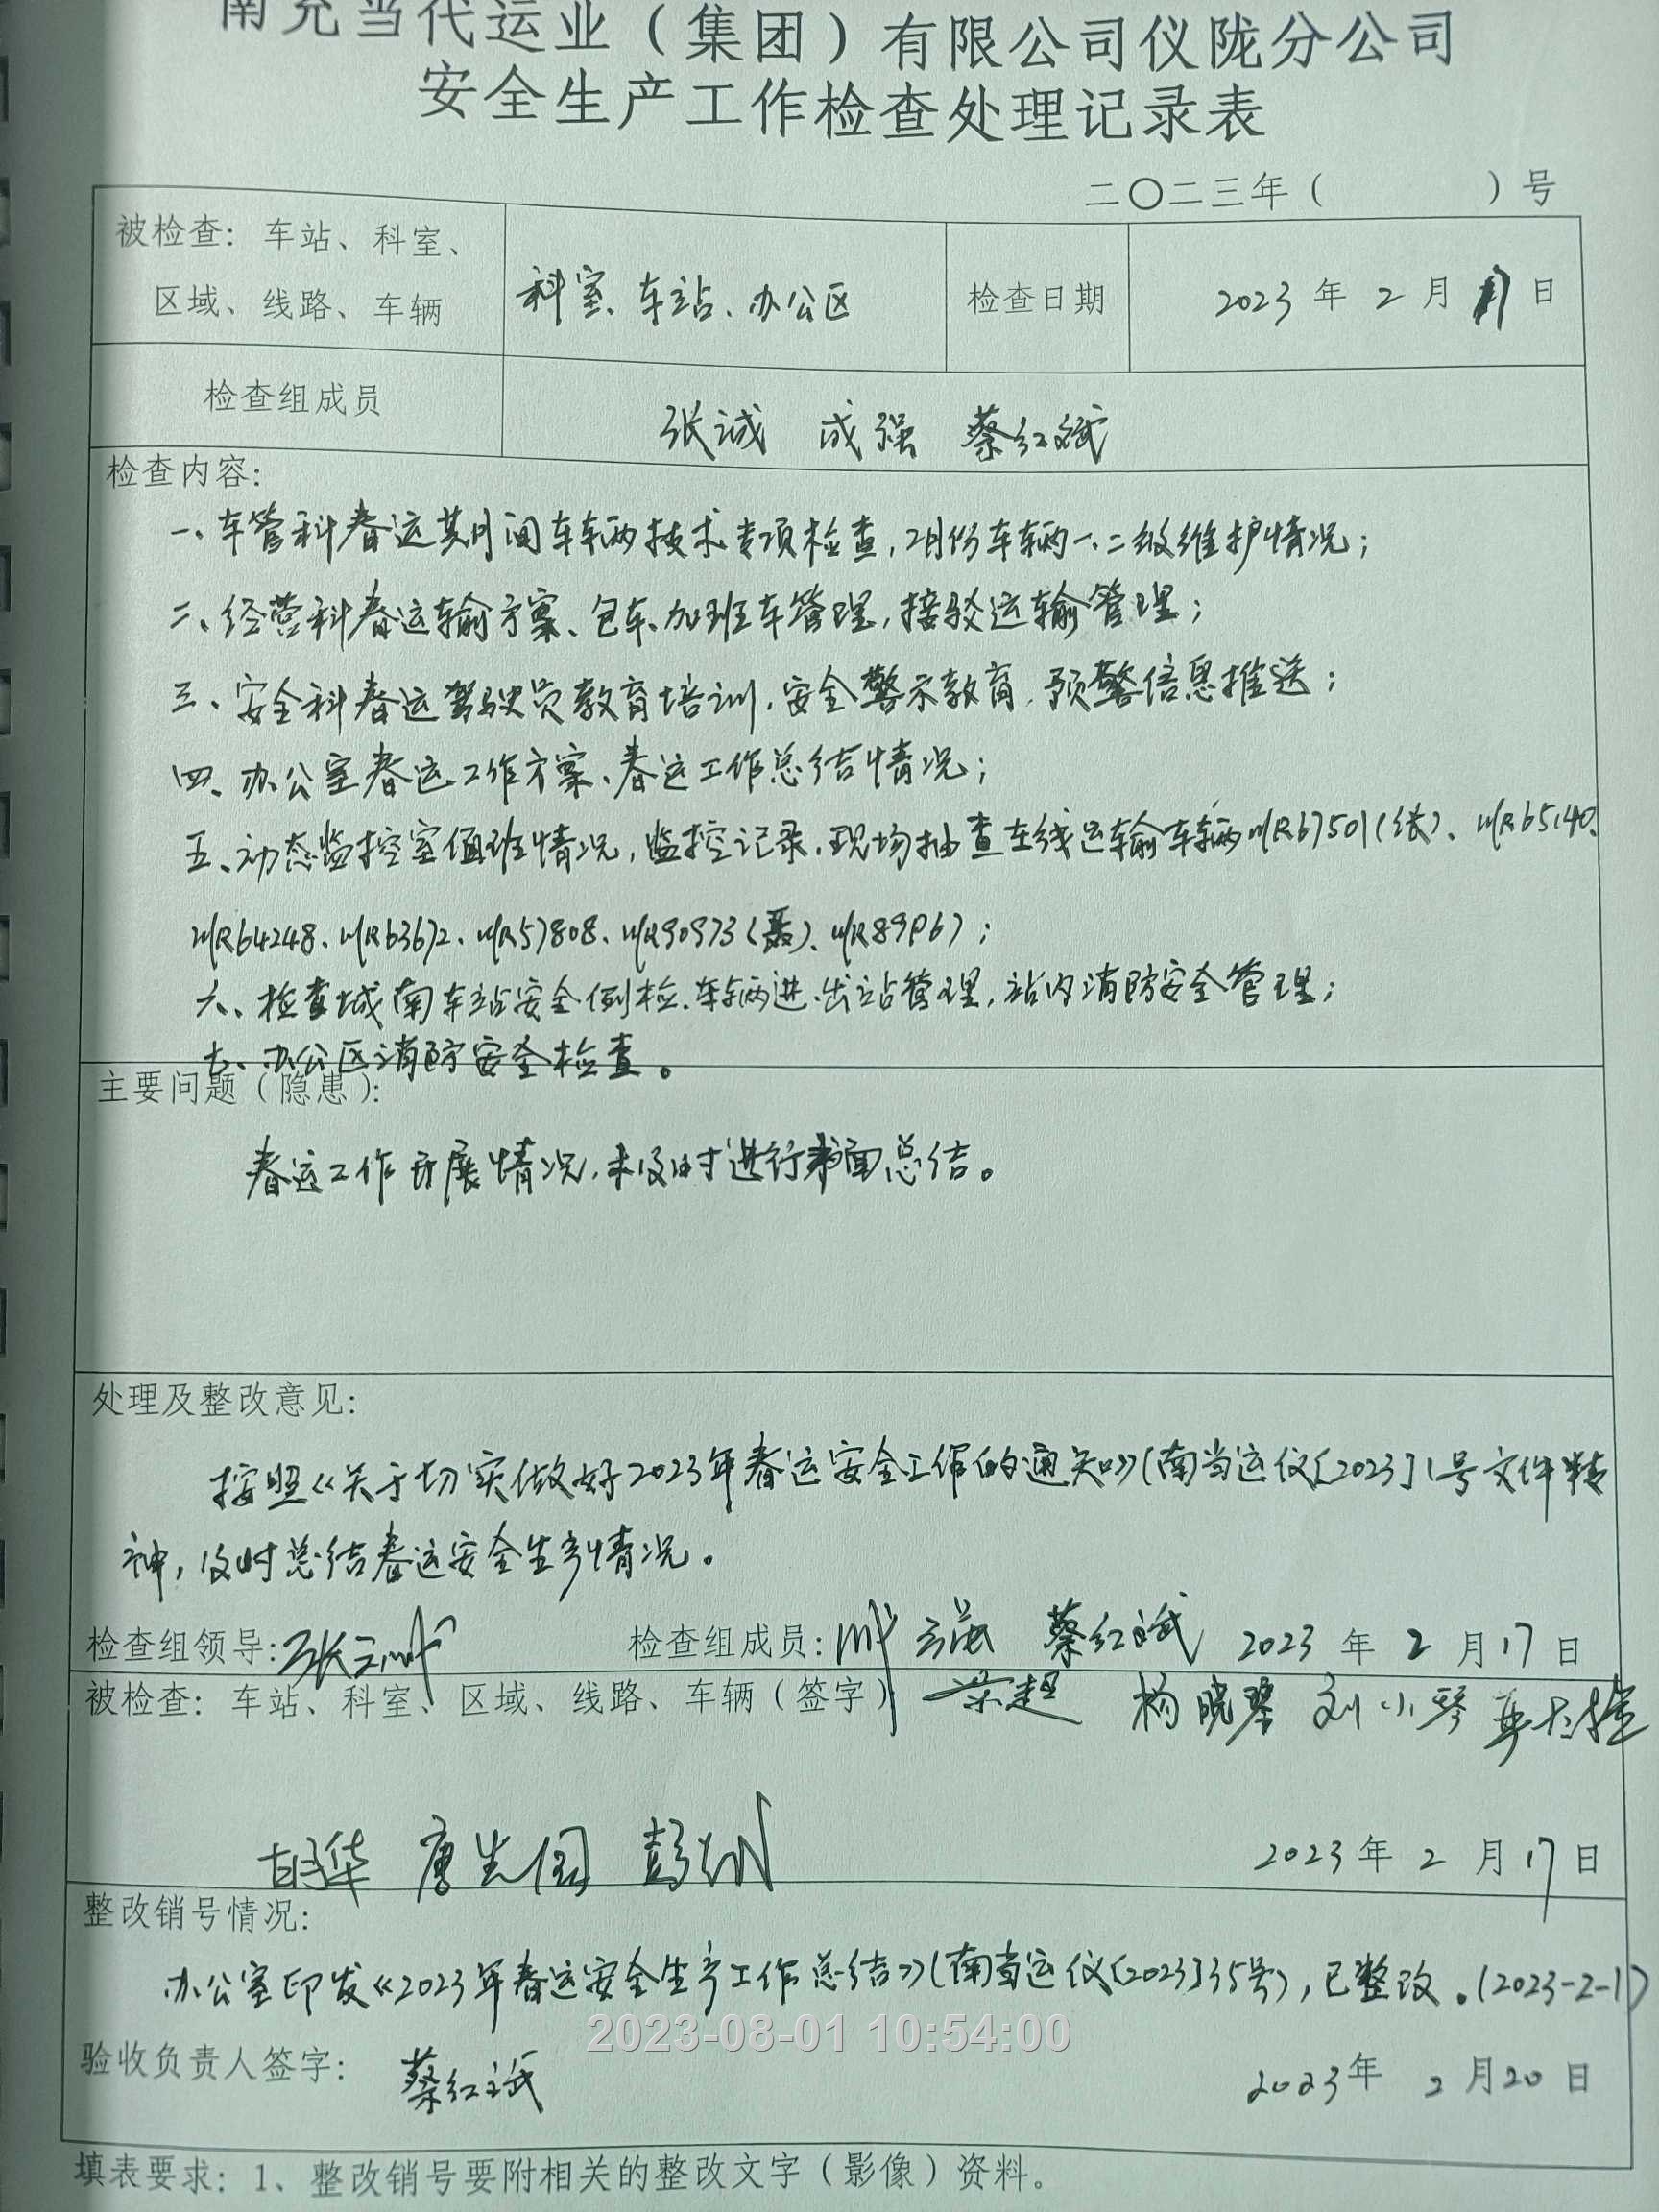 南充当代运业（集团）有限公司仪陇分公司
安全生产工作检查处理记录表
二〇二三年（ ）号
被检查：车站、科室、
区域、线路、车辆
科室、车站、办公区
检查日期
2023年2月17日
检查组成员
张诚 成强 蔡红斌
检查内容：
一、车管科春运期间车辆技术专项检查，2月份车辆一、二级维护情况；
二、经营科春运输方案、包车、加班车管理，接驳运输管理；
三、安全科春运驾驶员教育培训，安全警示教育，预警信息推送；
四、办公室春运工作方案、春运工作总结情况；
五、动态监控室值班情况，监控记录，现场抽查在线运输车辆川R67501(张)、川R65140、
川R64248、川R63672、川R57808、川R90973(聂)、川R89P67；
六、检查城南车站安全例检、车辆进、出站管理，站内消防安全管理；
七、办公区消防安全检查。
主要问题（隐患）：
春运工作开展情况，未及时进行书面总结。
处理及整改意见：
按照《关于切实做好2023年春运安全工作的通知》(南当运仪〔2023〕1号文件精
神，及时总结春运安全生产情况。
检查组领导：张 检查组成员： 蔡红斌 2023年2月17日
被检查：车站、科室、区域、线路、车辆（签字） 杨晓琴 刘小琴
唐先国 2023年2月17日
整改销号情况：
办公室印发《2023年春运安全生产工作总结》(南当运仪〔2023〕35号)，已整改。(2023-2-17)
2023-08-01 10:54:00
验收负责人签字：蔡红斌 2023年2月20日
填表要求：1、整改销号要附相关的整改文字（影像）资料。